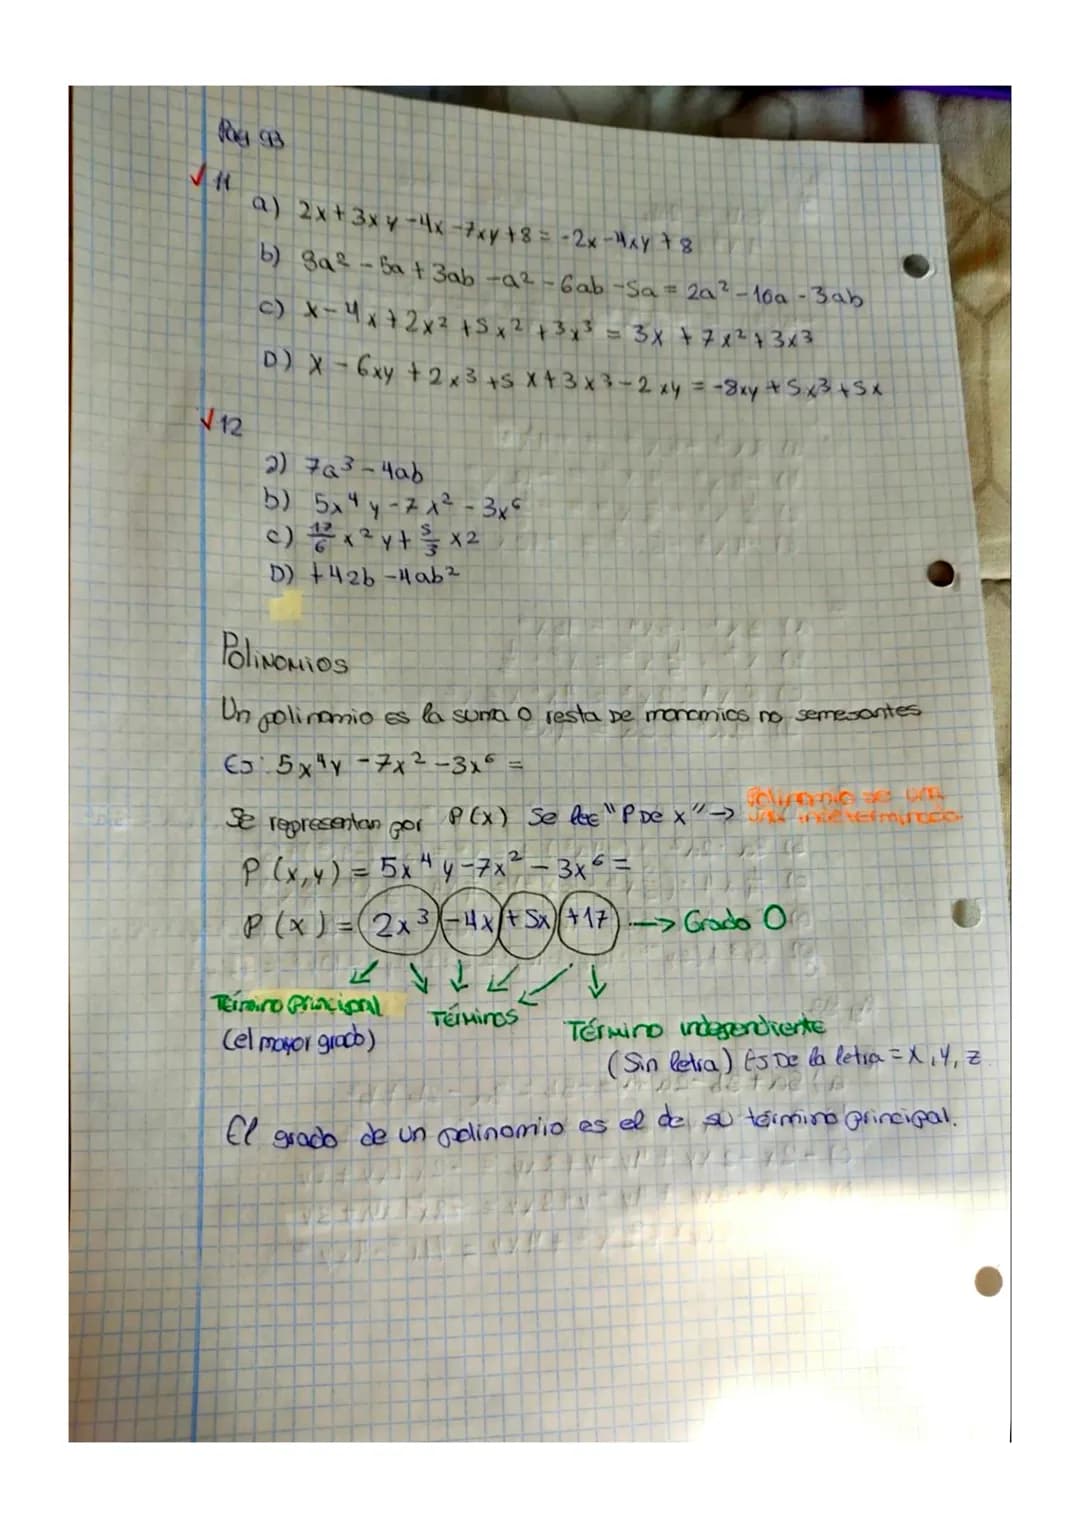 Pag 93
✓ 11
a) 2x+3xy-4x-7xy+8 = -2x-4xy+8
b) 3a² - 5a + 3ab - a² - 6ab - 5a = 2a² - 10a - 3ab
c) x-4x+2x²+5x²+3x³ = 3x + 7x² + 3x3
D) x - 6xy + 2x3 +5x+3x3-2xy = -8xy + 5x3 + 5x
✓ 12
a) 7a³ - 4ab
b) 5x⁴y - 7x² - 3x⁶
c) 17/6 x²y + 5/3 x2
D) +42b - 4ab²
POLINOMIOS
Un polinomio es la suma o resta de monomios no semesantes
EJ: 5x⁴y - 7x² - 3x⁶ =
Se representan por P(x) Se lee "P De x" → Polinomio de una
indeterminada
P(x,y) = 5x⁴y - 7x² - 3x⁶ =
P(x) = 2x³ -4x +5x +17 → Grado 0
Término principal
Términos
(el mayor grado)
Término independiente
(Sin letra) EJ De la letra = x, y, z
El grado de un polinomio es el de su término principal.